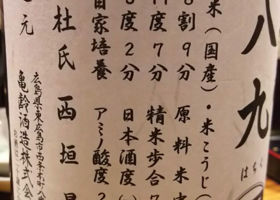 八九
はち
米（国産）・米こうじ（
割９分 原料米
度７分 精米歩合７
度２分 日本酒度（
自家培養 アミノ酸度２
杜氏 西垣
元
広島県東広島市西本町八
亀齢酒造株式会